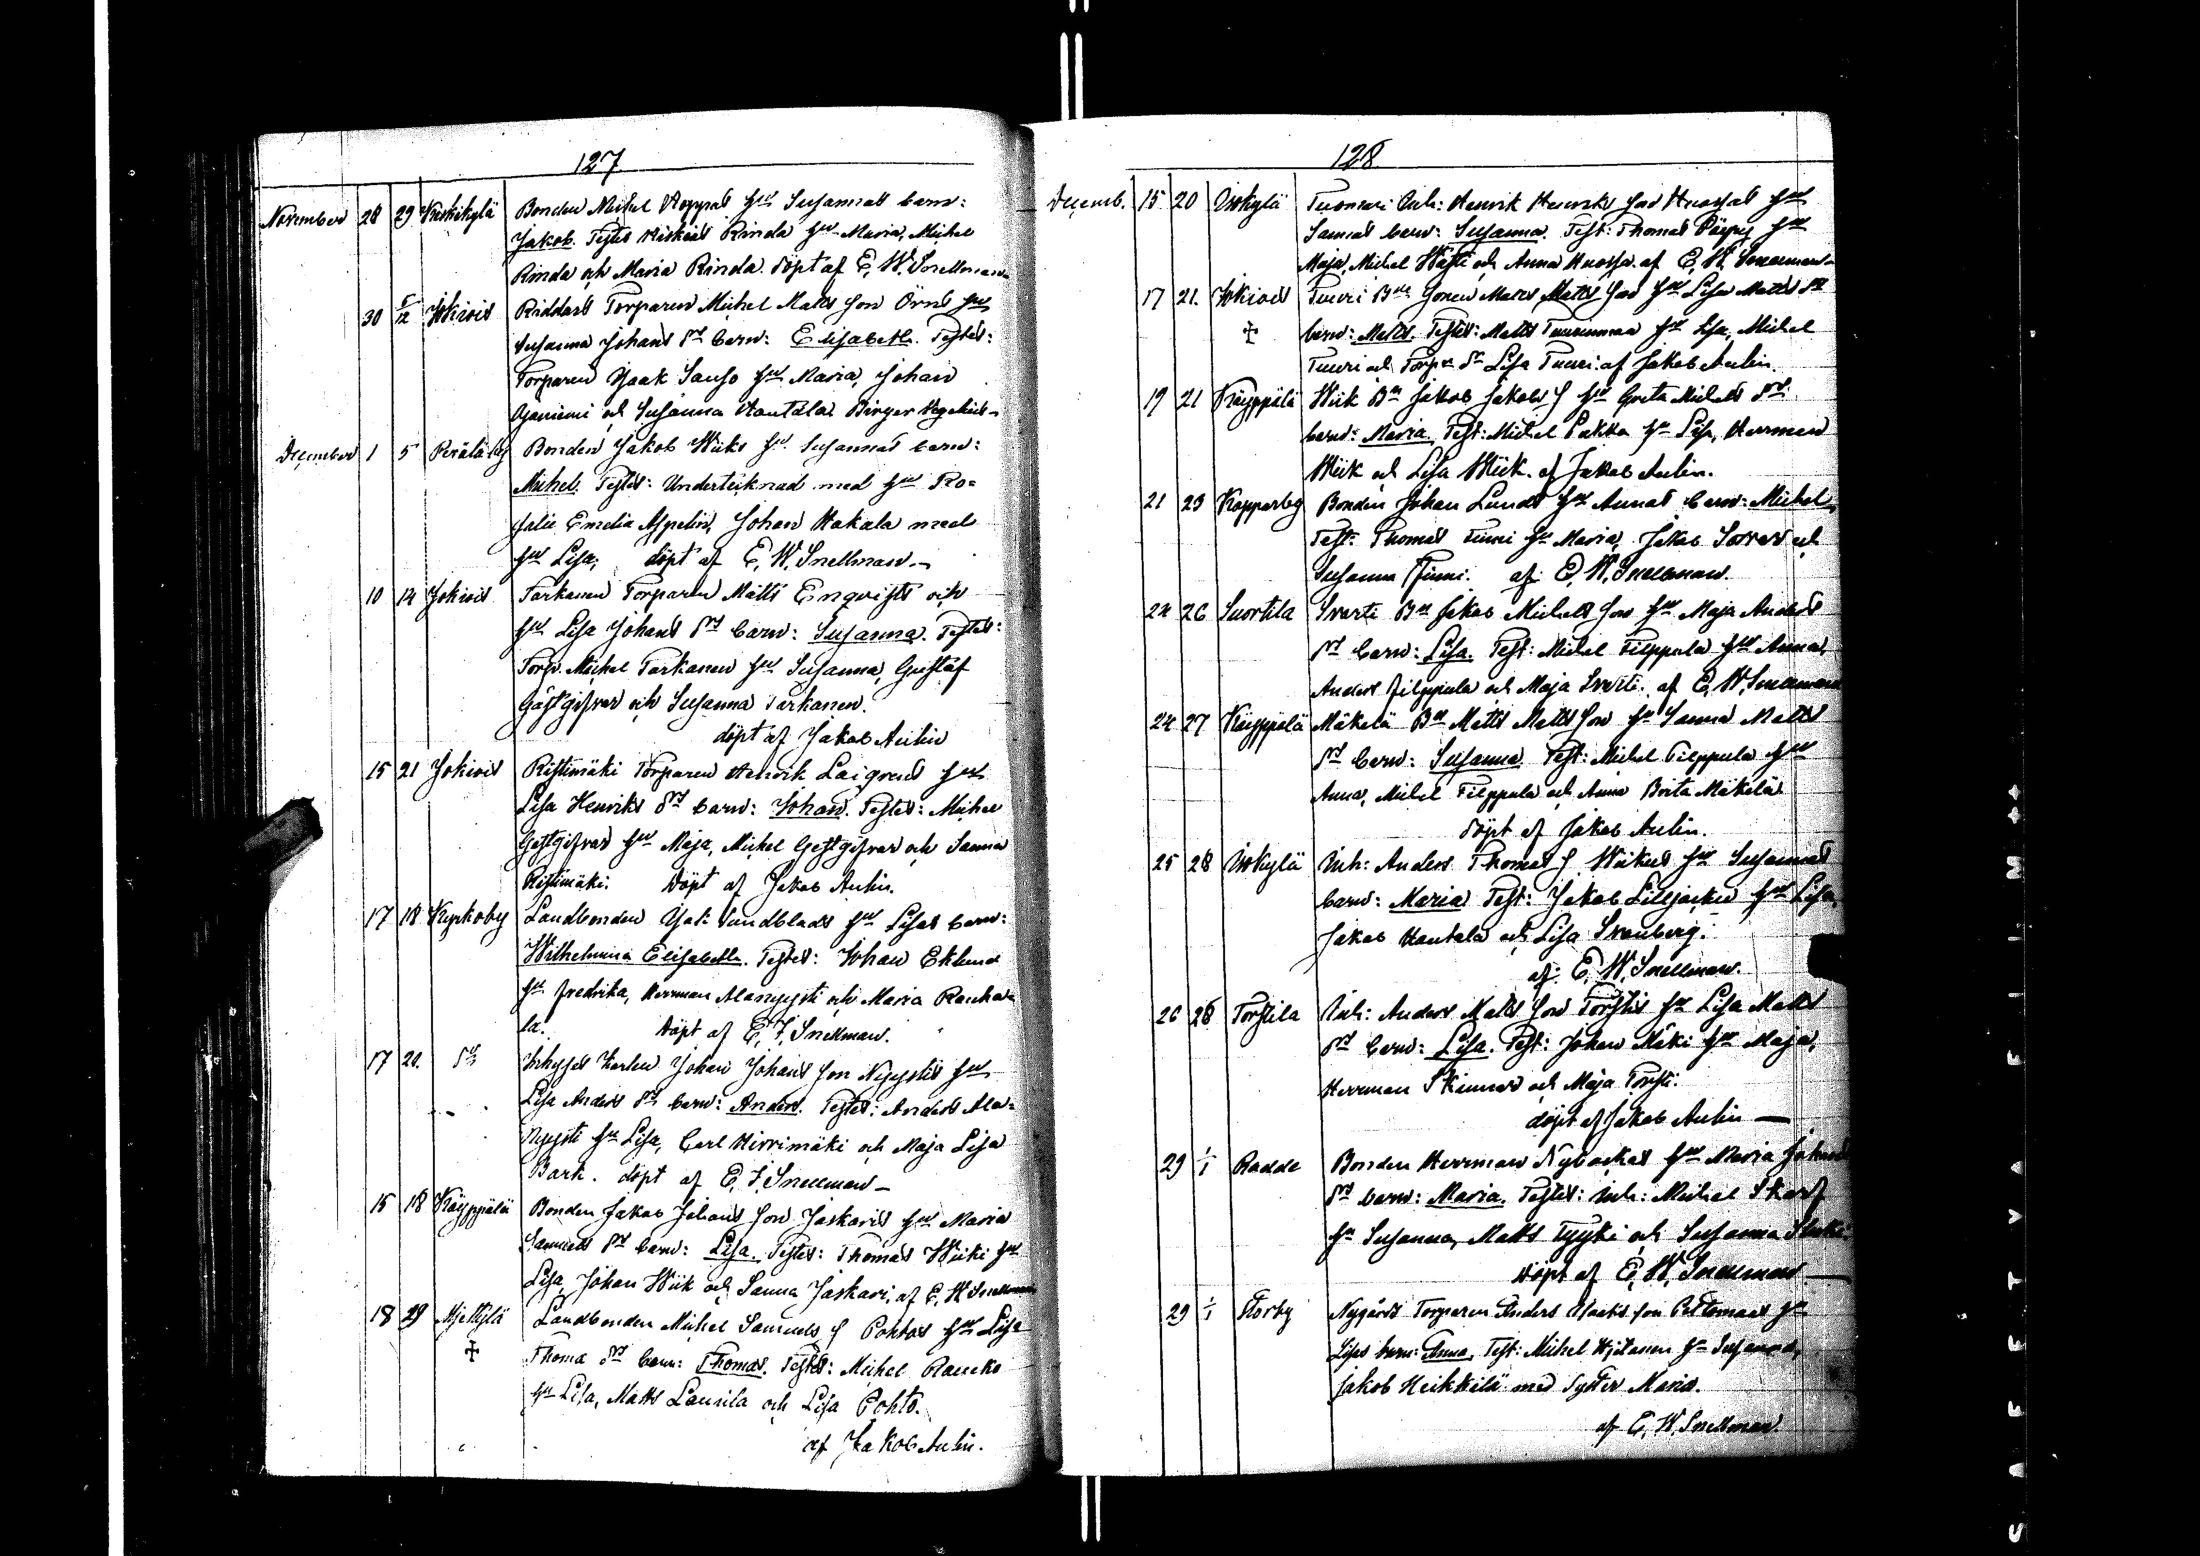 127
November 28 29 Keskikylä Bonden Michel Koppas hu Susannas barn:
Jakob. Testes Kiskis Rinda hu Maria, Michel
Rinda och Maria Rinda. döpt af E. W. Snellman
30 5/12 Jokivis Riddars Torparen Michel Matts son Örns hu
Susanna Johans dr barn: Elisabeth. Testes:
Torparen Isaak Sauso hu Maria, Johan
Ojaniemi och Susanna Hautala Birger Hegelund
December 1 5 Perälä Bonden Jakob Wiiks hu Susannas barn:
Michel. Testes: Undertecknad med hu Ro=
salie Emelia Aspelin, Johan Hakala med
hu Lisa, döpt af E. W. Snellman.
10 14 Jokivis Tarkanen Torparen Matts Enqvists och
hu Lisa Johans dr barn: Susanna. Testes:
Torp. Michel Tarkanen hu Susanna, Gustaf
Gästgifvar och Susanna Tarkanen.
döpt af Jakob Aulin
15 21 Jokivis Ristimäki Torparen Henrik Laigrens hu
Lisa Henriks dr barn: Johan. Testes: Michel
Gestgifvar hu Maja, Michel Gestgifvar och Sanna
Ristimäki. döpt af Jakob Aulin.
17 18 Kyrkoby Landbonden Isak Sundblads hu Lisas barn:
Wilhelmina Elisabeth. Testes: Johan Eklund
hu Fredrika, Herrman Alanyysti och Maria Rauha=
la. döpt af E. F. Snellman.
17 20. do Johan Johans son Nyystis hu
Lisa Anders dr barn: Anders. Testes: Anders Ala=
Nyysti hu Lisa, Carl Hirvimäki och Maja Lisa
Bark. döpt af E. F. Snellman
15 18 Käyppälä Bonden Jakob Johans son Jaskaris hu Maria
Samuels dr barn: Lisa. Testes: Thomas Wiiki hu
Lisa, Johan Wiik och Sanna Jaskari, af E. W. Snellman
18 29 Mjetkylä Landbonden Michel Samuels s Pohtos hu Lisa
Thoma dr barn: Thomas. Testes: Michel Rancko
hu Lisa, Matts Laurila och Lisa Pohto.
af Jakob Aulin.
128
Decemb. 15 20 Ytskylä Tuomari Inh: Henrik Henriks son Huossas hu
Sannas barn: Susanna. Test: Thomas Päypy hu
Maja, Michel Wästi och Anna Huossa. af E. W. Snellman
17 21. Jokivis Tuuri Bde Sonen Matts Matts son hu Lisa Matts dr
barn: Matts. Testes: Matts Tuurinmaa hu Lisa, Michel
Tuuri och Torp. dr Lisa Tuuri. af Jakob Aulin.
19 21 Käyppälä Wiik Bn Jakob Jakobs s hu Greta Michels drs
barn: Maria. Test: Michel Pakka hu Lisa, Herrman
Wiik och Lisa Wiik. af Jakob Aulin.
21 23 Kopparbg Bonden Johan Lunds hu Annas barn: Michel,
Test: Thomas Finni hu Maria, Jakob Sorvar och
Susanna Finni. af E. W. Snellman.
24 26 Suortila Sverti Bn Jakob Michels son hu Maja Anders
dr barn: Lisa. Test: Michel Filppula hu Anna,
Anders Filppula och Maja Sverti. af E. W. Snellman
24 27 Käyppälä Mäkelä Bn Matts Matts son hu Sanna Matts
dr barn: Susanna. Test: Michel Filppula hu
Anna, Michel Filppula och Anna Brita Mäkelä
döpt af Jakob Aulin.
25 28 Ytskylä Inh: Anders Thomas s Wiikus hu Susannas
barn: Maria. Test: Jakob Lilljacku hu Lisa,
Jakob Hautala och Lisa Svanberg.
af E. W. Snellman.
26 28 Torstila Inh: Anders Matts son Torstis hu Lisa Matts
dr barn: Lisa. Test: Johan Mäki hu Maja,
Herrman Skinnar och Maja Torsti.
döpt af Jakob Aulin
29 1/1 Radde Bonden Herrman Nybackas hu Maria Johans
dr barn: Maria. Testes: Inh: Michel Skarf
hu Susanna, Matts Tyyki och Susanna
döpt af E. W. Snellman
29 1/1 Storby Nygårds Torparen Anders Isaks son Pettomaas hu
Lisas barn: Anna, Test: Michel Hjetanen hu Susanna,
Jakob Heikkilä med Syster Maria.
af E. W. Snellman.
SAFETY FILM